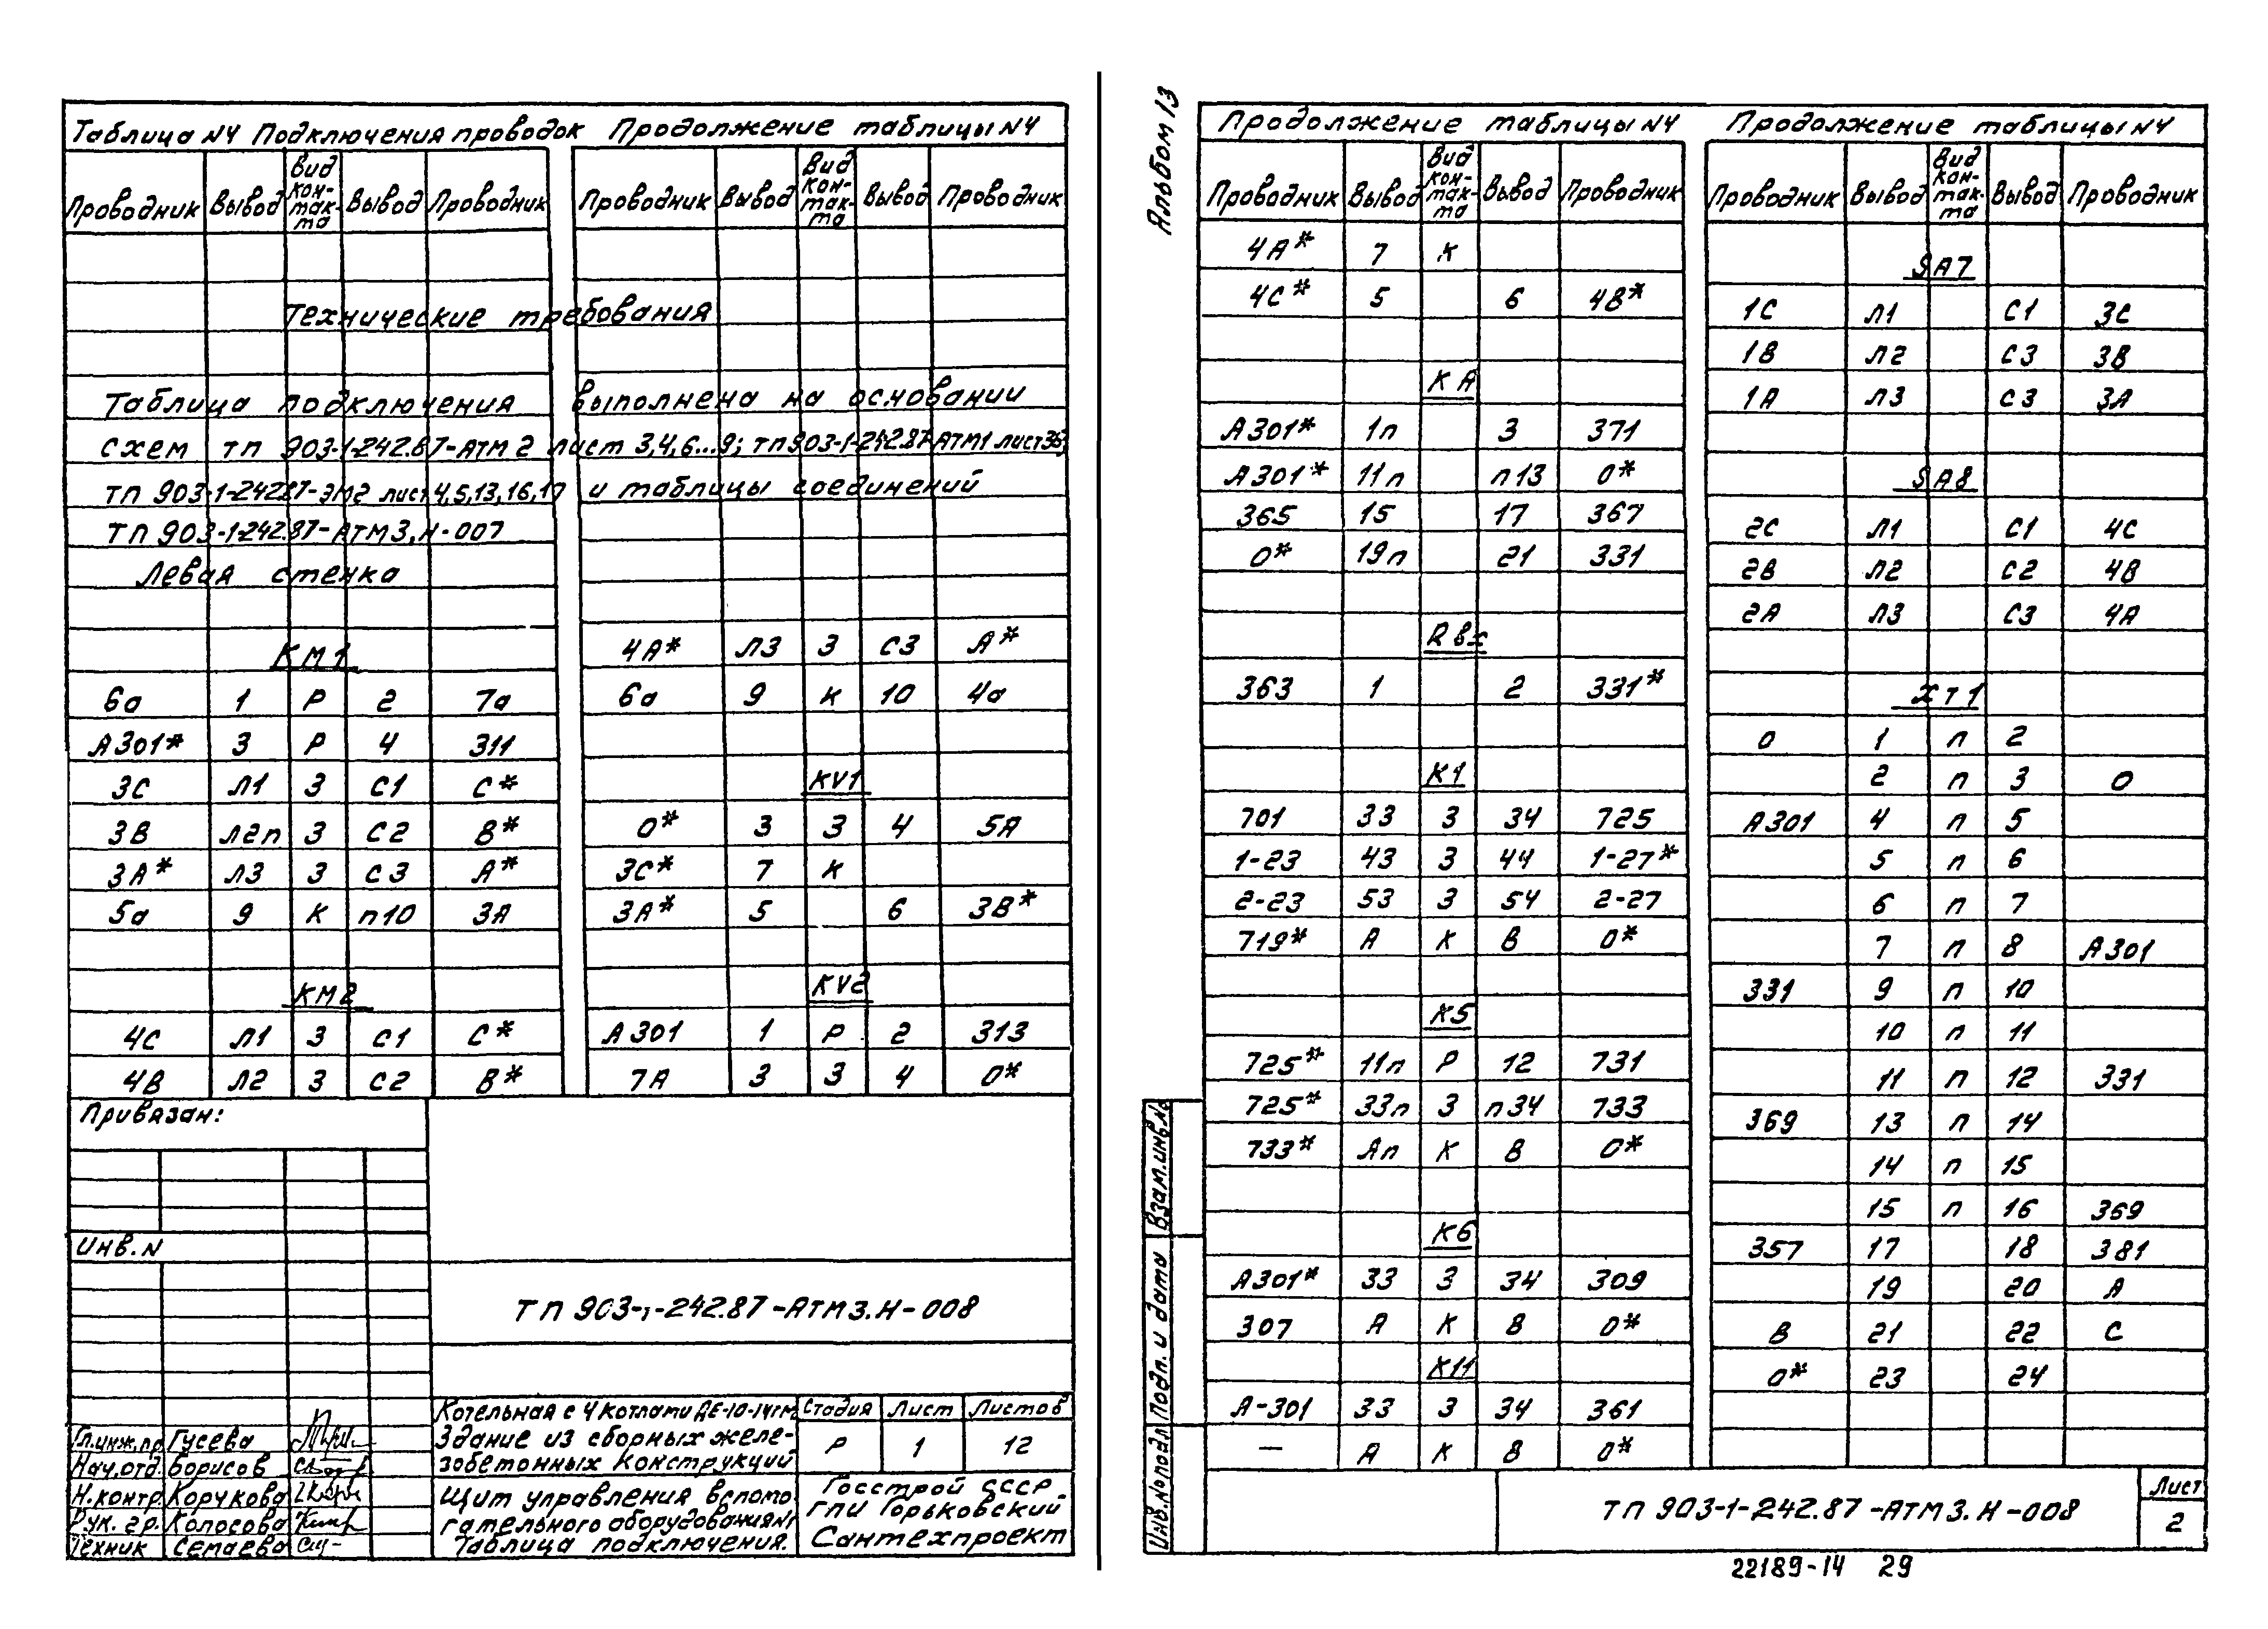 Таблица N4 Подключения проводок
Проводник Вывод Вид кон-так-та Вывод Проводник
Продолжение таблицы N4
Проводник Вывод Вид кон-так-та Вывод Проводник
Технические требования
Таблица подключения выполнена на основании
схем тп 903-1-242.87-АТМ2 лист 3,4,6...9; тп 903-1-242.87-АТМ1 лист 36,
тп 903-1-242.87-ЭМ2 лист 4,5,13,16,17 и таблицы соединений
ТП 903-1-242.87-АТМ3.Н-007
Левая стенка
КМ1
6а 1 Р 2 7а
А301* 3 Р 4 311
3С Л1 3 С1 С*
3В Л2п 3 С2 В*
3А* Л3 3 С3 А*
5а 9 К п10 3А
КМ2
4С Л1 3 С1 С*
4В Л2 3 С2 В*
4А* Л3 3 С3 А*
6а 9 К 10 4а
KV1
0* 3 3 4 5А
3С* 7 К
3А* 5 6 3В*
KV2
А301 1 Р 2 313
7А 3 3 4 0*
Привязан:
Инв.N
ТП 903-1-242.87-АТМ3.Н-008
Котельная с 4 котлами ДЕ-10-14ГМ
Здание из сборных желе-
зобетонных конструкций
Стадия Лист Листов
Р 1 12
Гл.инж.пр. Гусева
Нач.отд. Борисов
Н.контр. Корчкова
Рук. гр. Колосова
Техник Семаева
Щит управления вспомо-
гательного оборудования N1
Таблица подключения.
Госстрой СССР
ГПИ Горьковский
Сантехпроект
Альбом 13
Продолжение таблицы N4
Проводник Вывод Вид кон-так-та Вывод Проводник
4А* 7 К
4С* 5 6 4В*
КА
А301* 1п 3 371
А301* 11п п13 0*
365 15 17 367
0* 19п 21 331
Rвх
363 1 2 331*
К1
701 33 3 34 725
1-23 43 3 44 1-27*
2-23 53 3 54 2-27
719* А К В 0*
К5
725* 11п Р 12 731
725* 33п 3 п34 733
733* Ап К В 0*
К6
А301* 33 3 34 309
307 А К В 0*
К11
А-301 33 3 34 361
— А К В 0*
Продолжение таблицы N4
Проводник Вывод Вид кон-так-та Вывод Проводник
SA7
1С Л1 С1 3С
1В Л2 С3 3В
1А Л3 С3 3А
SA8
2С Л1 С1 4С
2В Л2 С2 4В
2А Л3 С3 4А
ХТ1
0 1 п 2
2 п 3 0
А301 4 п 5
5 п 6
6 п 7
7 п 8 А301
331 9 п 10
10 п 11
11 п 12 331
369 13 п 14
14 п 15
15 п 16 369
357 17 18 381
19 20 А
В 21 22 С
0* 23 24
Взам.инв.№
Подп. и дата
Инв.№подл
ТП 903-1-242.87-АТМ3.Н-008
Лист
2
22189-14 29